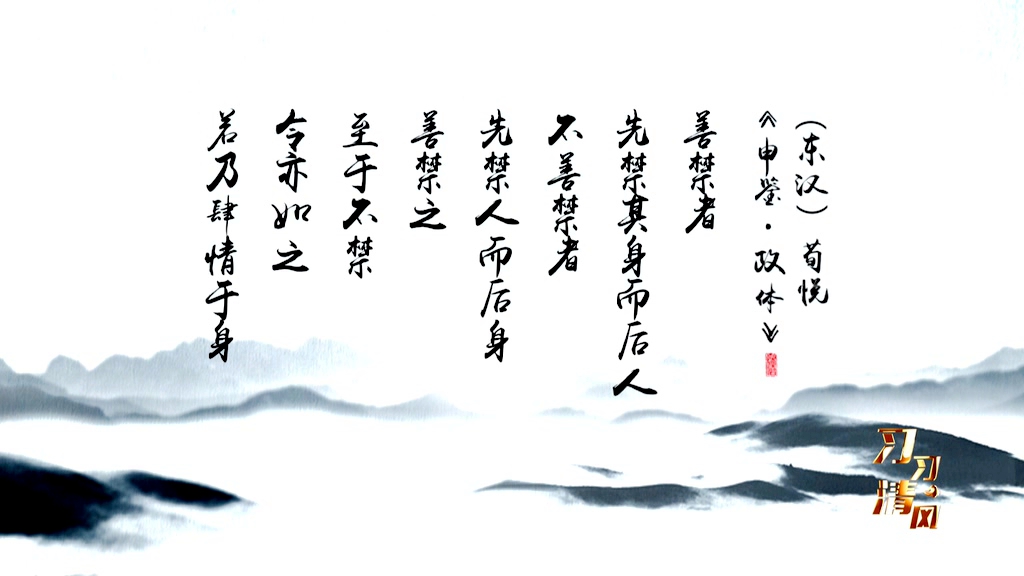 （东汉）荀悦
《申鉴·政体》
善禁者
先禁其身而后人
不善禁者
先禁人而后身
善禁之
至于不禁
令亦如之
若乃肆情于身
习习清风